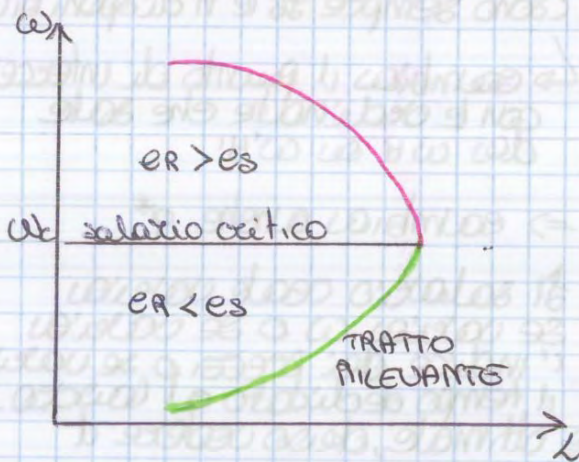 ω
eR > eS
ωc salario critico
eR < eS
TRATTO
RILEVANTE
L